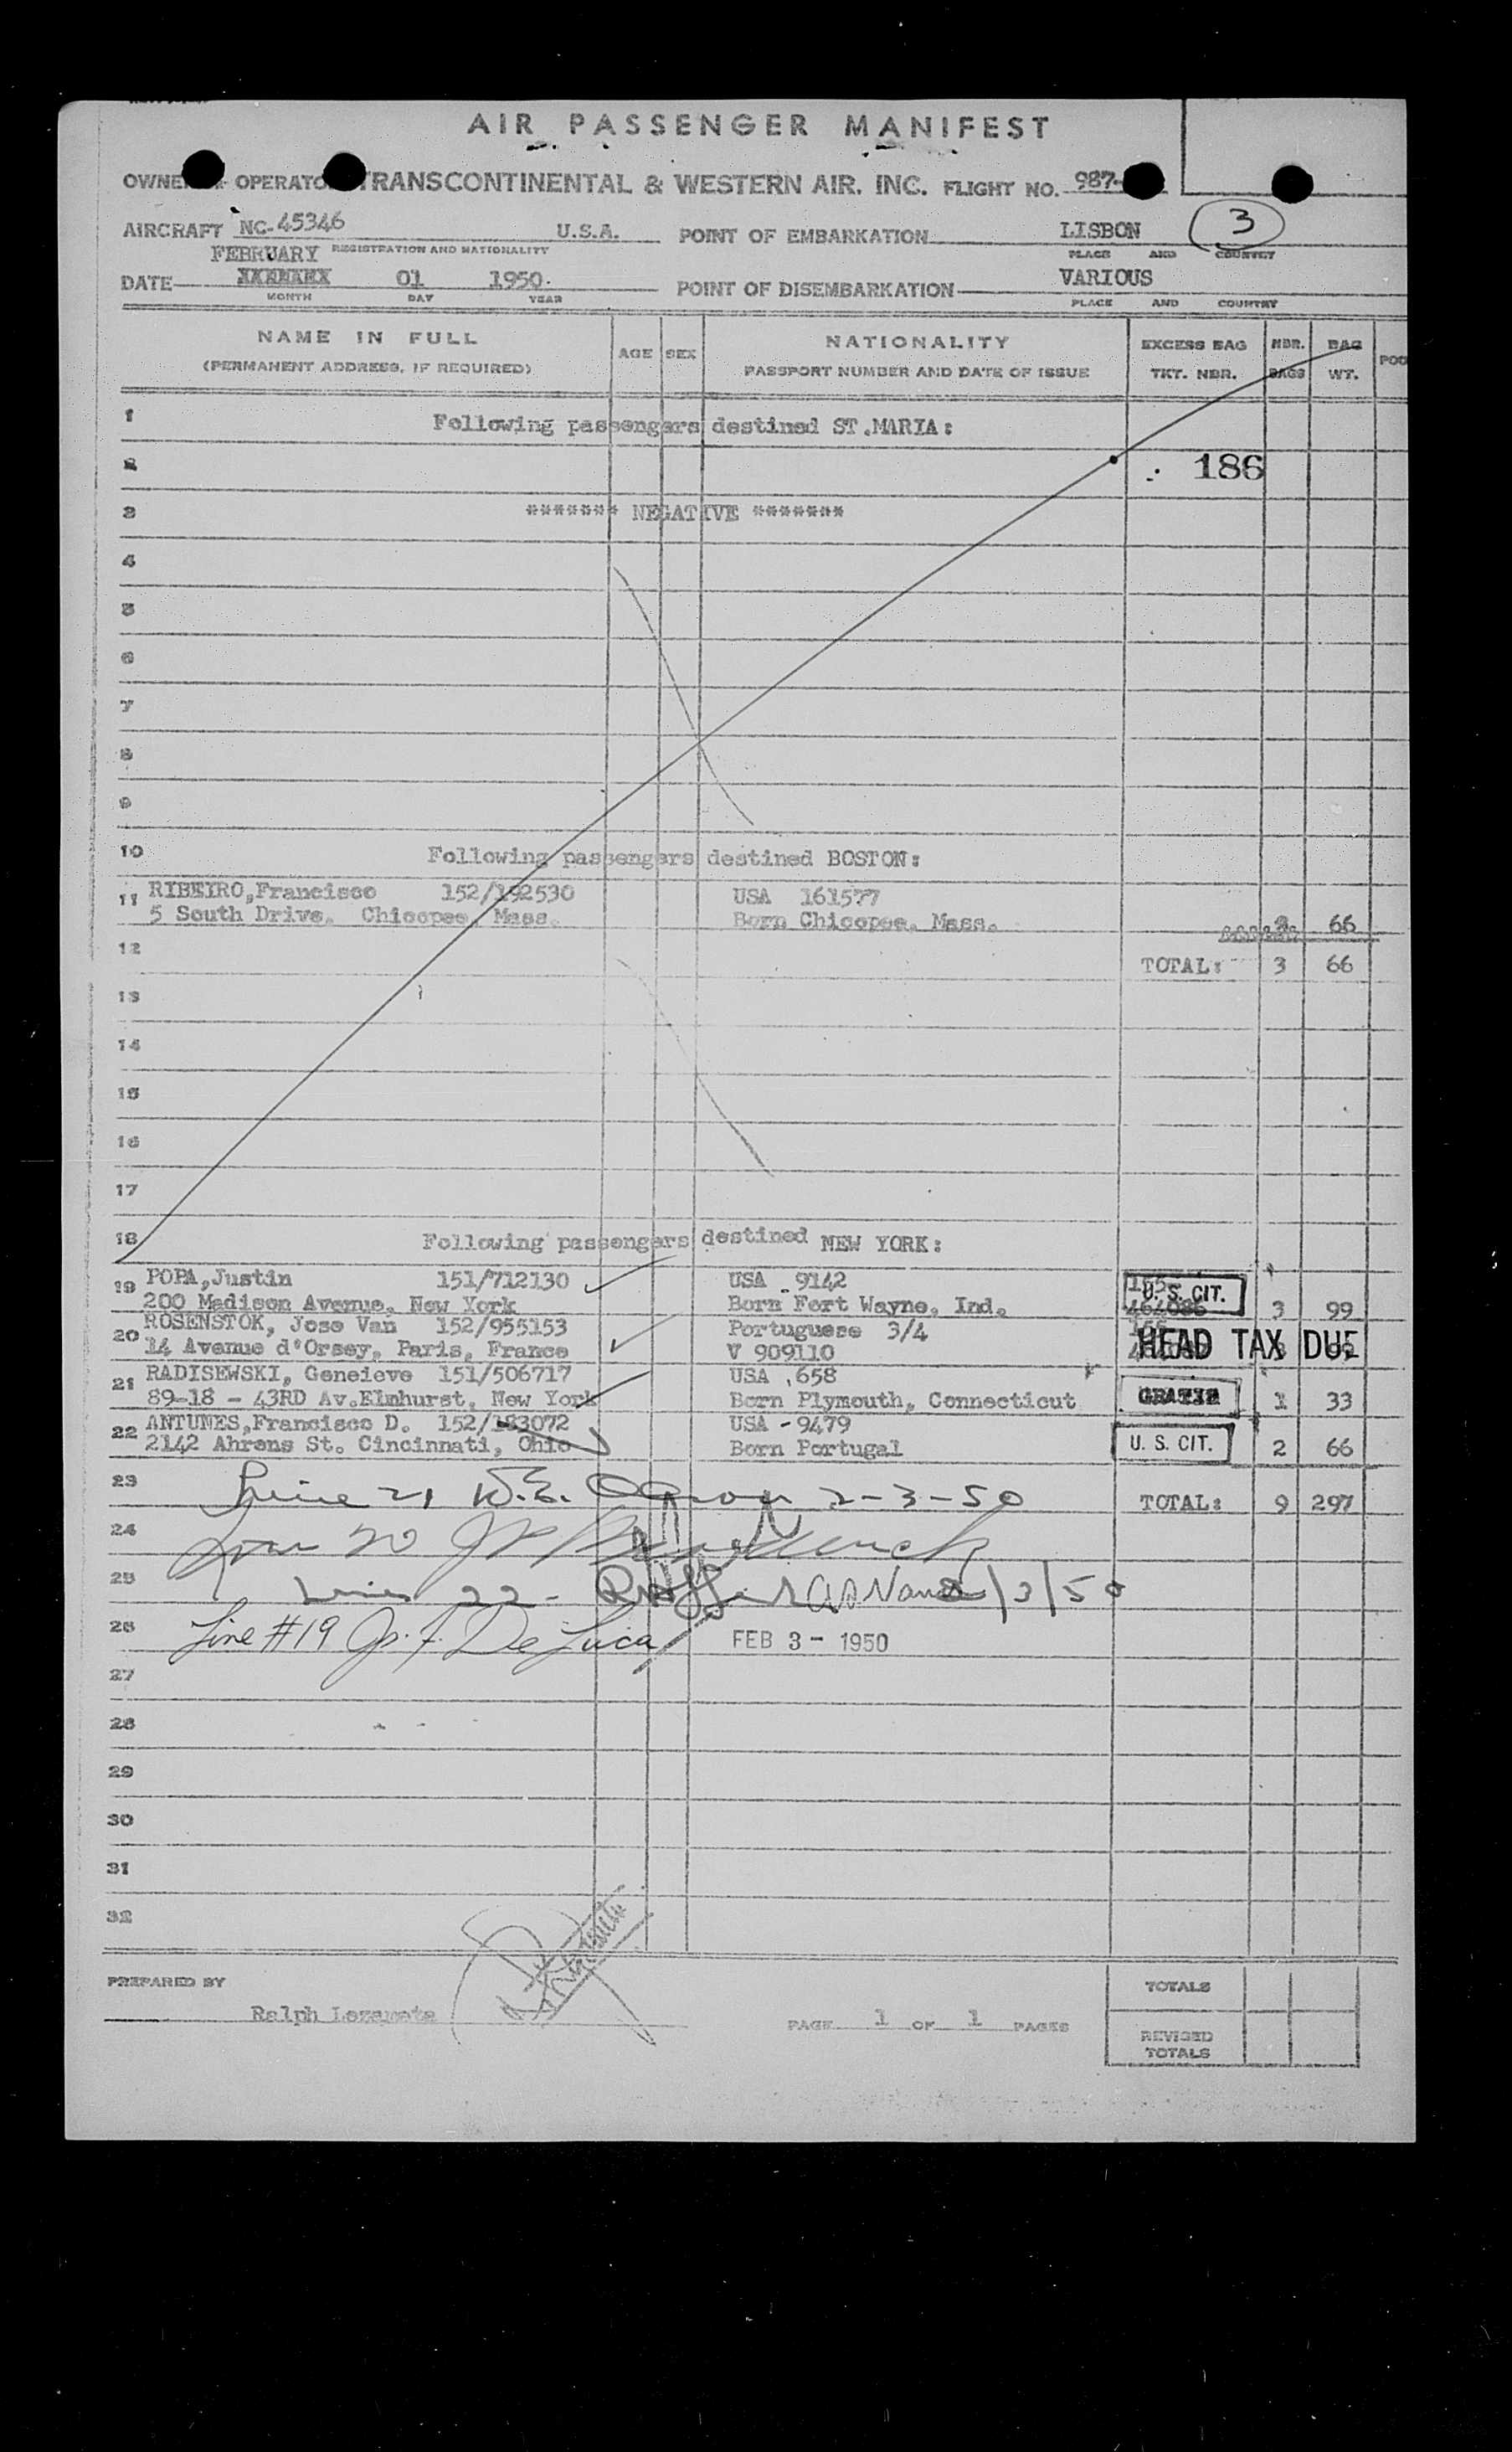 AIR PASSENGER MANIFEST
OPERATO TRANSCONTINENTAL & WESTERN AIR. INC. FLIGHT NO. 987-
AIRCRAFT NC-45346 U.S.A. POINT OF EMBARKATION LISBON 3
REGISTRATION AND NATIONALITY PLACE AND COUNTRY
FEBRUARY
DATE 01 1950. POINT OF DISEMBARKATION VARIOUS
MONTH DAY YEAR PLACE AND COUNTRY
NAME IN FULL AGE SEX NATIONALITY EXCESS BAG NBR. BAG
(PERMANENT ADDRESS, IF REQUIRED) PASSPORT NUMBER AND DATE OF ISSUE TKT. NBR. BAGS WT.
1 Following passengers destined ST.MARIA:
2 186
3 ******* NEGATIVE *******
4
5
6
7
8
9
10 Following passengers destined BOSTON:
11 RIBEIRO,Francisco 152/192530 USA 161577
5 South Drive. Chicopee, Mass. Born Chicopee, Mass. 3 66
12 TOTAL: 3 66
13
14
15
16
17
18 Following passengers destined NEW YORK:
19 POPA,Justin 151/712130 USA 9142 U.S. CIT.
200 Madison Avenue, New York Born Fort Wayne, Ind. 464086 3 99
20 ROSENSTOK, Jose Van 152/955153 Portuguese 3/4
14 Avenue d'Orsey, Paris, France V 909110 HEAD TAX DUE
21 RADISEWSKI, Geneieve 151/506717 USA 658
89-18 - 43RD Av.Elmhurst, New York Born Plymouth, Connecticut 1 33
22 ANTUNES,Francisco D. 152/183072 USA - 9479
2142 Ahrens St. Cincinnati, Ohio Born Portugal U. S. CIT. 2 66
23 Line 21 W.E. 2-3-50 TOTAL: 9 297
24 Line 20
25 Line 22 - 2/3/50
26 Line #19 Jo. F. De Luca FEB 3 - 1950
27
28
29
30
31
32
PREPARED BY TOTALS
Ralph PAGE 1 OF 1 PAGES
REVISED
TOTALS